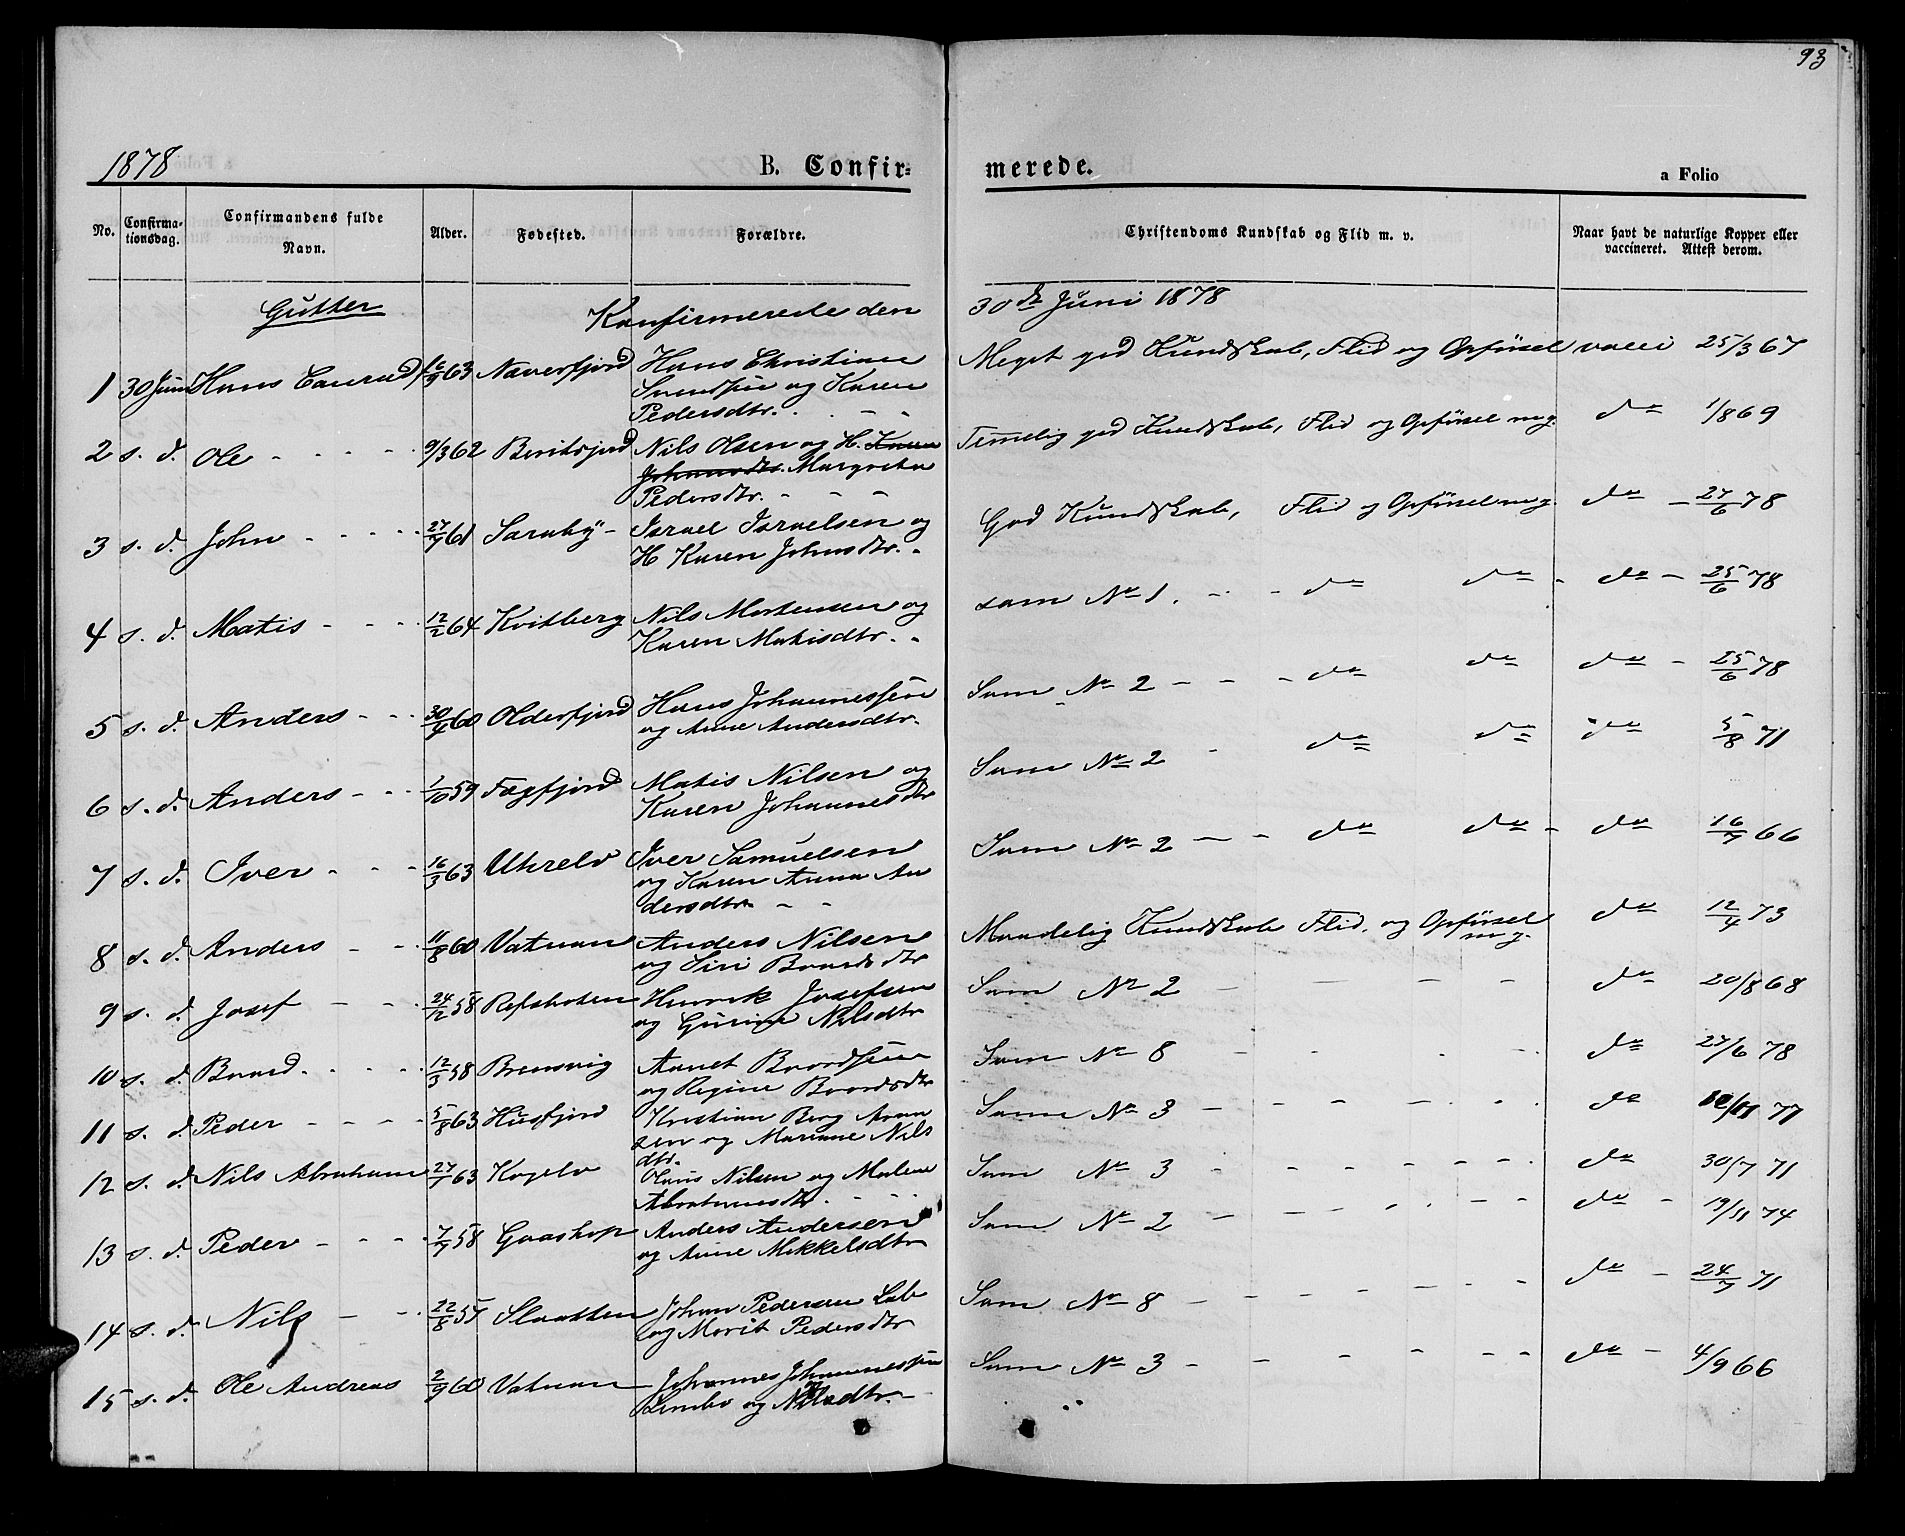 93
1878 B. Confir= merede. a Folio
No. Confirma-tionsdag. Confirmandens fulde Navn. Alder. Fødested. Forældre. Christendoms Kundskab og Flid m. v. Naar havt de naturlige Kopper eller vaccineret. Attest derom.
Gutter Konfirmerede den 30de Juni 1878
1 30 Juni Hans Conrad 63 Næverfjord Hans Christian Meget god Kundskab, Flid og Opførsel vacci 25/3 67
Svendsen og Karen
Pedersdtr. - -
2 s. d. Ole - - - - 9/3 62 Nils Olsen og H. Karen Temmelig god Kundskab, Flid og Opførsel mg. do 1/8 69
Johansdtr. Margretha
Pedersdtr. - - -
3 s. d. John - - - - 27/7 61 Saraby - Israel Israelsen og God Kundskab, Flid og Opførsel mg. do - 27/6 78
H Karen Johnsdtr. -
4 s. d. Matis - - - 12/2 64 Kvitberg Nils Mortensen og som No 1. - - do do - do - 25/6 78
Karen Matisdtr. -
5 s. d. Anders - - - 30/4 60 Olderfjord Hans Johannessen Som No 2 - - - do do do - 25/6 78
og Ane Andersdtr.
6 s. d. Anders - - - 1/10 59 Fægfjord Matis Nilsen og Som No 2 - do do do 5/8 71
Karen Johannesdtr
7 s. d. Iver - - - 16/3 63 Uhrelv Iver Samuelsen Som No 2 - - do do - do 16/7 66
og Karen Anna An
dersdtr - -
8 s. d. Anders - - 11/8 60 Vatnan Anders Nilsen Maadelig Kundskab Flid, og Opførsel mg. do 12/4 73
og Siri Baardsdtr
9 s. d. Josef - - 24/2 58 Refsbotten Henrik Josefsen Som No 2 - - - - do 20/8 68
og Gurine Nilsdtr
10 s. d. Baard - - - - 12/3 58 Brensvig Aanet Baardsen Som No 8 - - - - do 27/6 78
og Regine Baardsdtr
11 s. d. Peder - - - - 5/8 63 Husfjord Kristian Berg Aron Som No 3 - - - - - do 77
sen og Mariane Nils
dtr.
12 s. d. Nils Abraham 27/7 63 Kogelv Olaus Nilsen og Malene Som No 3 - - - - - - do 30/7 71
Abrahamsdtr. - - -
13 s. d. Peder - - - - 7/7 58 Gaashop Anders Andersen Som No 2 - - - - - - do - 19/11 74
og Ane Mikkelsdtr
14 s. d. Nils - - 22/8 Slaatten Johan Pedersen Lab Som No 8 - - - - - - do - 24/7 71
og Marit Pedersdtr
15 s. d. Ole Andreas 2/9 60 Vatnan Johannes Johannessen Som No 3 - - - - - - do - 4/9 66
Lembo og Nilsdtr. -